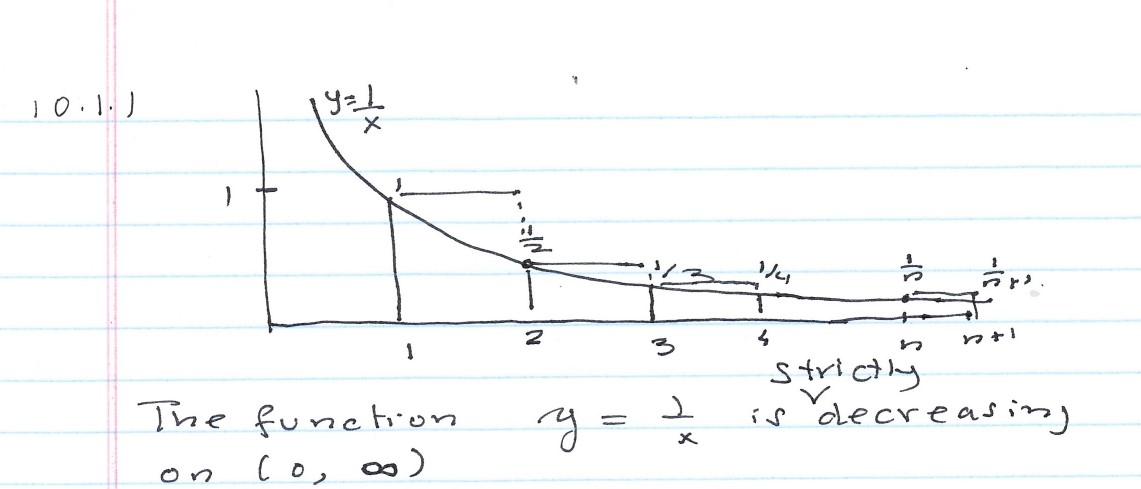 10.1.1
y=1/x
1
1
1/2
1/3
1/4
1/n
1/n+1
1 2 3 4 n n+1
strictly
The function y = 1/x is decreasing
on (0, ∞)